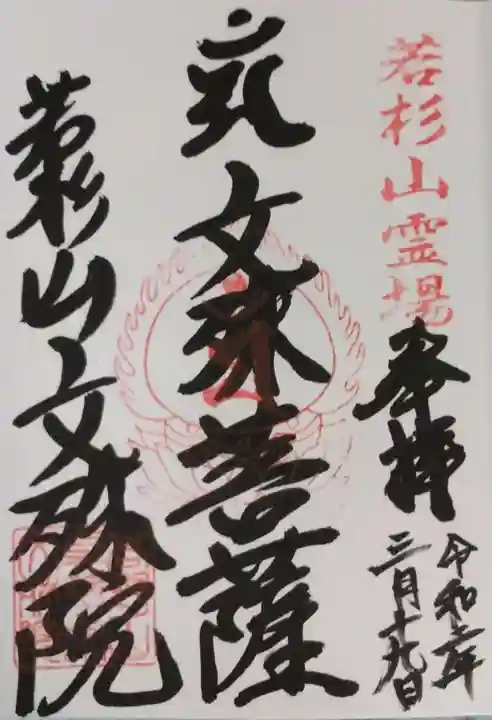 若杉山霊場
奉拝
令和六年
三月十九日
文殊菩薩
若杉山文殊院